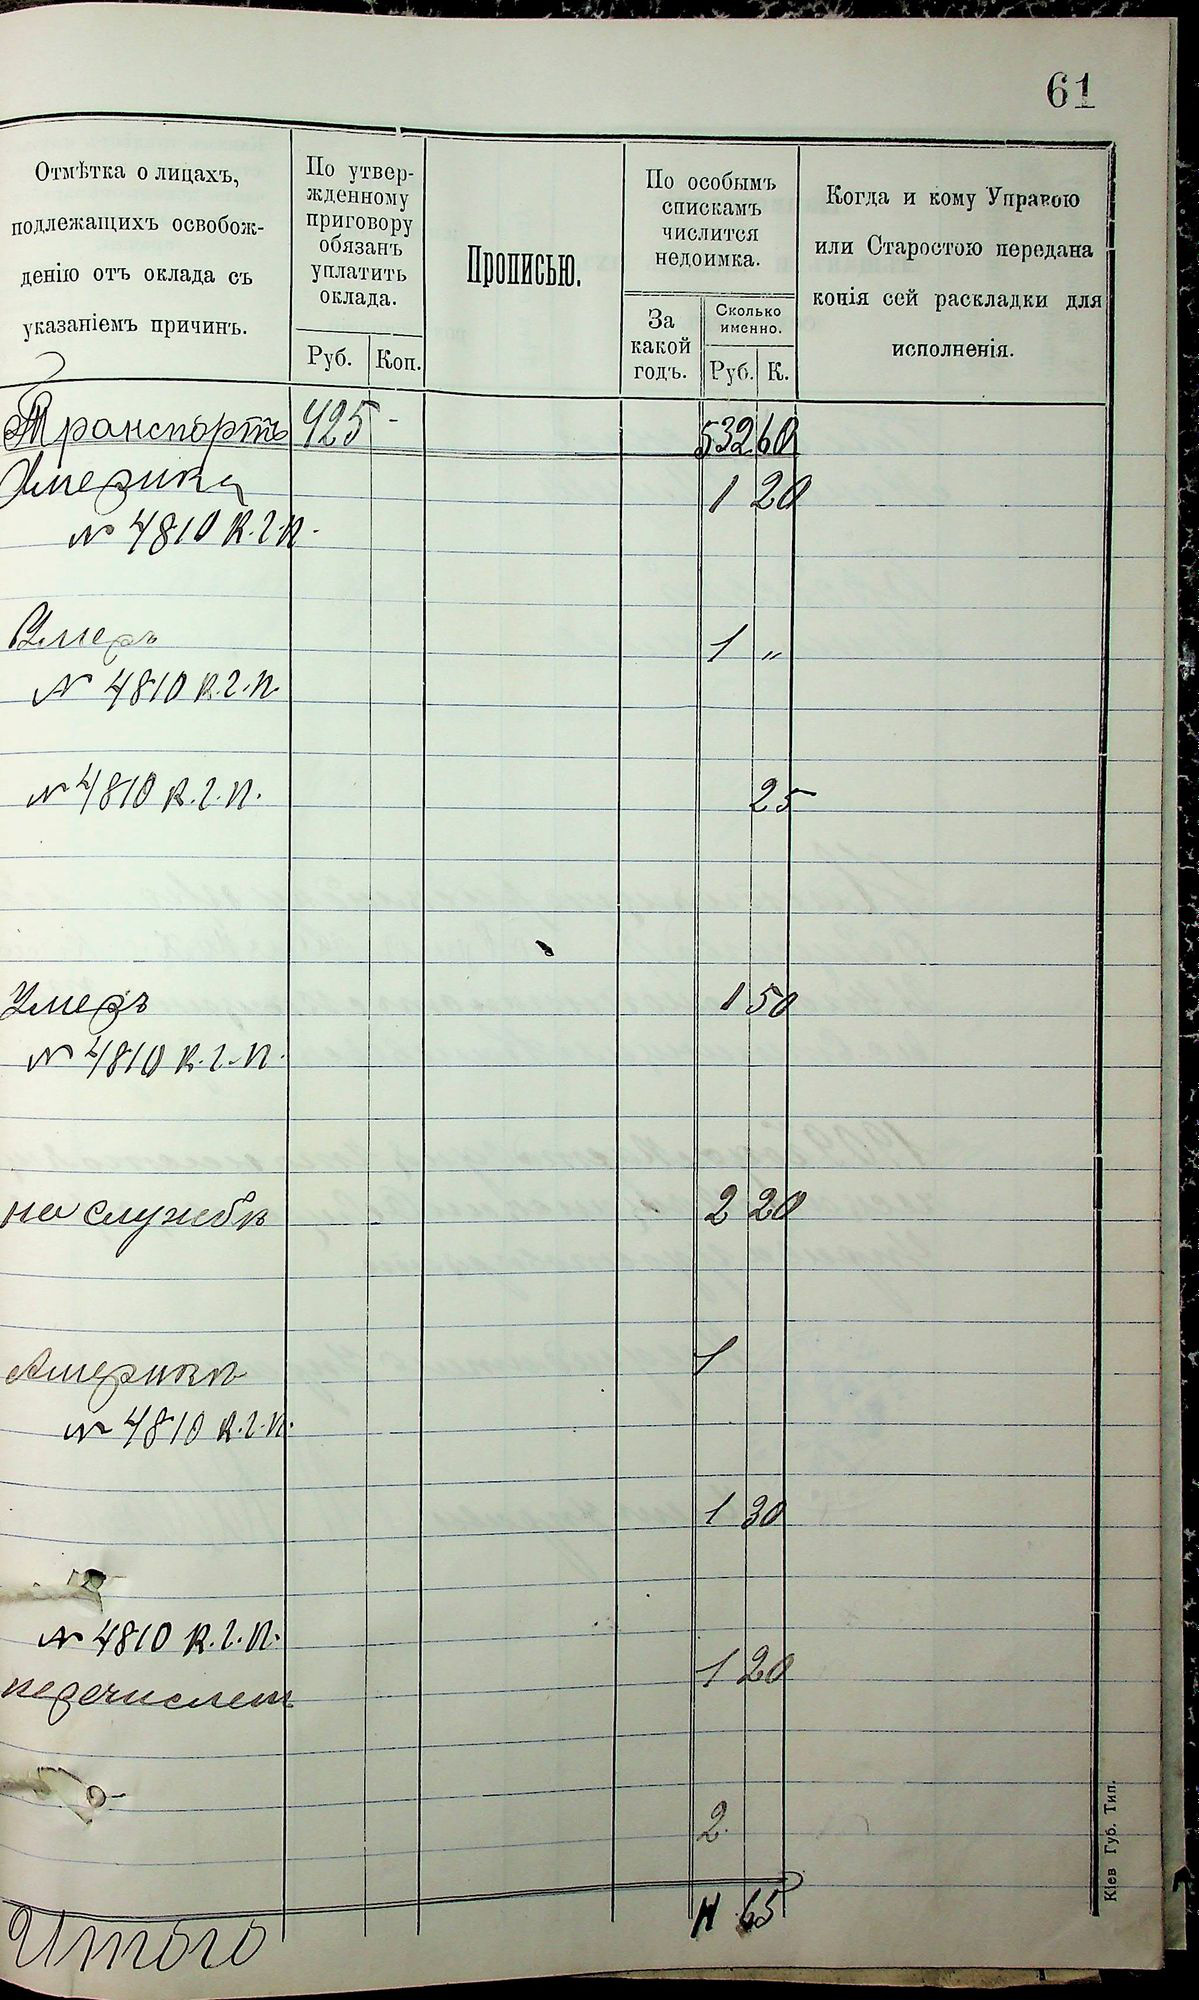 61
Отмѣтка о лицахъ, подлежащихъ освобож-
денію отъ оклада съ указаніемъ причинъ.
По утвер-
жденному
приговору
обязанъ
уплатить
оклада.
Руб. Коп.
Прописью.
По особымъ
спискамъ
числится
недоимка.
За
какой
годъ.
Сколько
именно.
Руб. К.
Когда и кому Управою
или Старостою передана
копія сей раскладки для
исполненія.
Транспортъ 425 - 532 60
Америка 1 20
№ 4810 К.г.п.
Умеръ 1 „
№ 4810 К.г.п.
№ 4810 К.г.п. 25
Умеръ 1 50
№ 4810 К.г.п.
на службѣ 2 20
Америкѣ 1
№ 4810 К.г.п.
1 30
№ 4810 К.г.п.
1 20
перечислен
2
Итого 11 65
Кіев Губ. Тип.